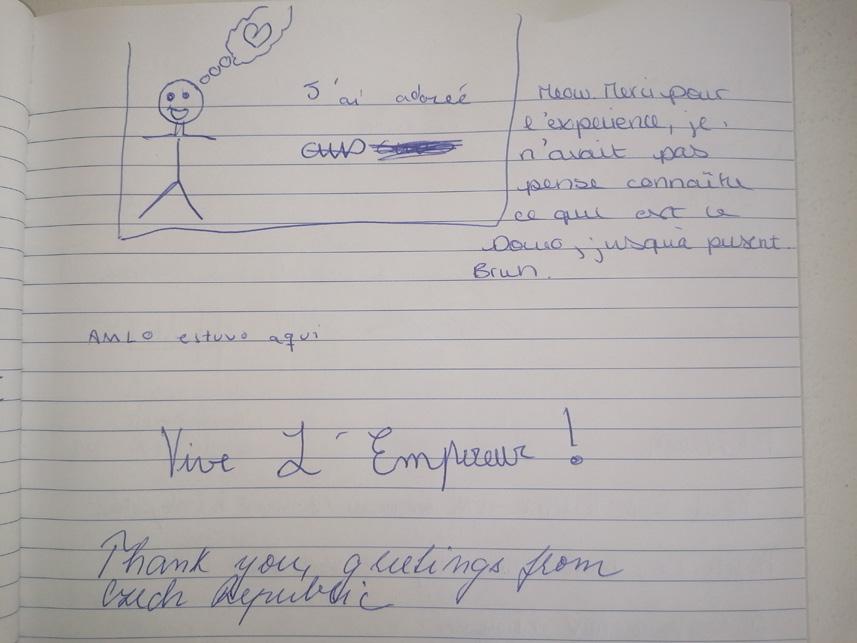 J'ai adoréé
Meow. Merci pour
l'experience, je
n'avait pas
pense connaître
ce que est le
jusqu'à present.
Brun.
AMLO estuvo aqui
Vive L'Empereur !
Thank you, greetings from
Czech Republic